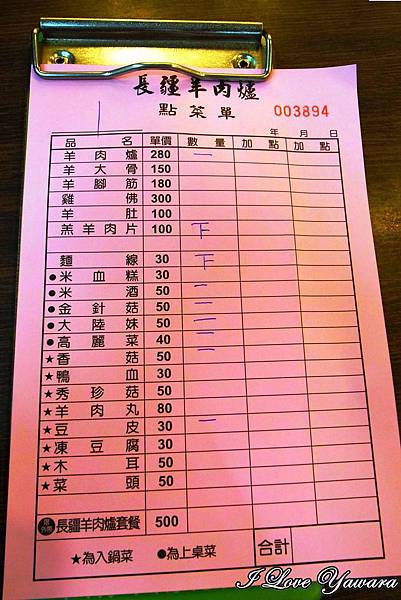 長疆羊肉爐
點菜單 003894
年 月 日
品名 單價 數量 加點 加點
羊肉爐 280 一
羊大骨 150
羊腳筋 180
雞佛 300
羊肚 100
羔羊肉片 100 下
麵線 30 下
●米血糕 30
●米酒 50 一
●金針菇 50 一
●大陸妹 50 二
●高麗菜 40 一
★香菇 50
★鴨血 30
★秀珍菇 50
★羊肉丸 80
★豆皮 30 一
★凍豆腐 30
★木耳 50
★菜頭 50
長疆羊肉爐套餐 500
★為入鍋菜 ●為上桌菜 合計
I Love Yawara